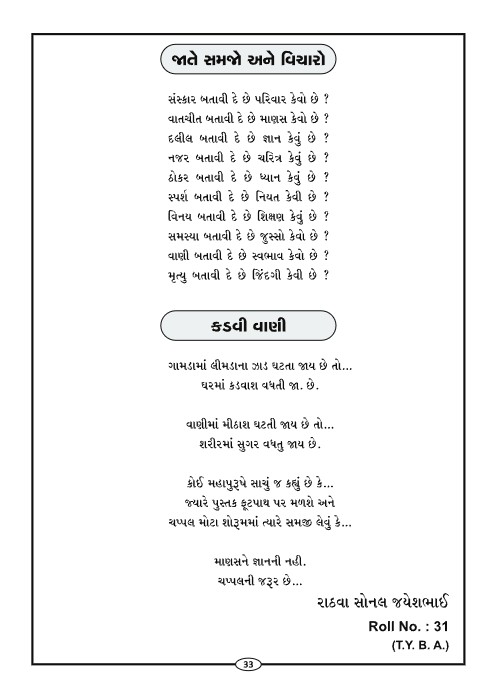 જાતે સમજો અને વિચારો
સંસ્કાર બતાવી દે છે પરિવાર કેવો છે ?
વાતચીત બતાવી દે છે માણસ કેવો છે ?
દલીલ બતાવી દે છે જ્ઞાન કેવું છે ?
નજર બતાવી દે છે ચરિત્ર કેવું છે ?
ઠોકર બતાવી દે છે ધ્યાન કેવું છે ?
સ્પર્શ બતાવી દે છે નિયત કેવી છે ?
વિનય બતાવી દે છે શિક્ષણ કેવું છે ?
સમસ્યા બતાવી દે છે જુસ્સો કેવો છે ?
વાણી બતાવી દે છે સ્વભાવ કેવો છે ?
મૃત્યુ બતાવી દે છે જિંદગી કેવી છે ?
કડવી વાણી
ગામડામાં લીમડાના ઝાડ ઘટતા જાય છે તો...
ઘરમાં કડવાશ વધતી જા. છે.
વાણીમાં મીઠાશ ઘટતી જાય છે તો...
શરીરમાં સુગર વધતુ જાય છે.
કોઈ મહાપુરૂષે સાચું જ કહ્યું છે કે...
જ્યારે પુસ્તક ફૂટપાથ પર મળશે અને
ચપ્પલ મોટા શોરૂમમાં ત્યારે સમજી લેવું કે...
માણસને જ્ઞાનની નહી.
ચપ્પલની જરૂર છે...
રાઠવા સોનલ જયેશભાઈ
Roll No. : 31
(T.Y. B. A.)
33